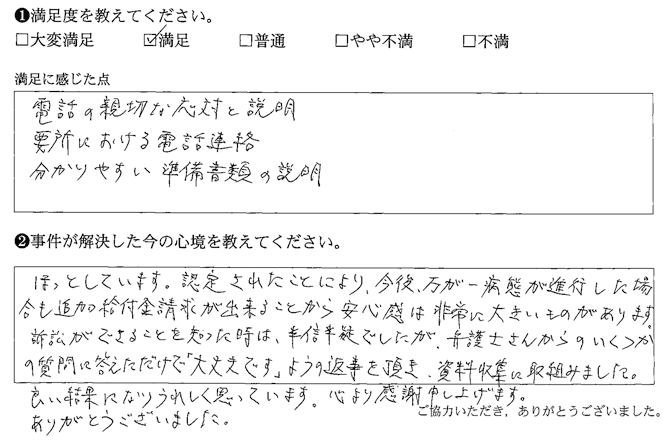 ❶満足度を教えてください。
□大変満足 ☑満足 □普通 □やや不満 □不満
満足に感じた点
電話の親切な応対と説明
要所における電話連絡
分かりやすい準備書類の説明
❷事件が解決した今の心境を教えてください。
ほっとしています。認定されたことにより、今後、万が一病態が進行した場
合も追加給付金請求が出来ることから安心感は非常に大きいものがあります。
訴訟ができることを知った時は、半信半疑でしたが、弁護士さんからのいくつか
の質問に答えただけで「大丈夫です」ようの返事を頂き、資料収集に取組みました。
良い結果になりうれしく思っています。心より感謝申し上げます。
ありがとうございました。
ご協力いただき，ありがとうございました。